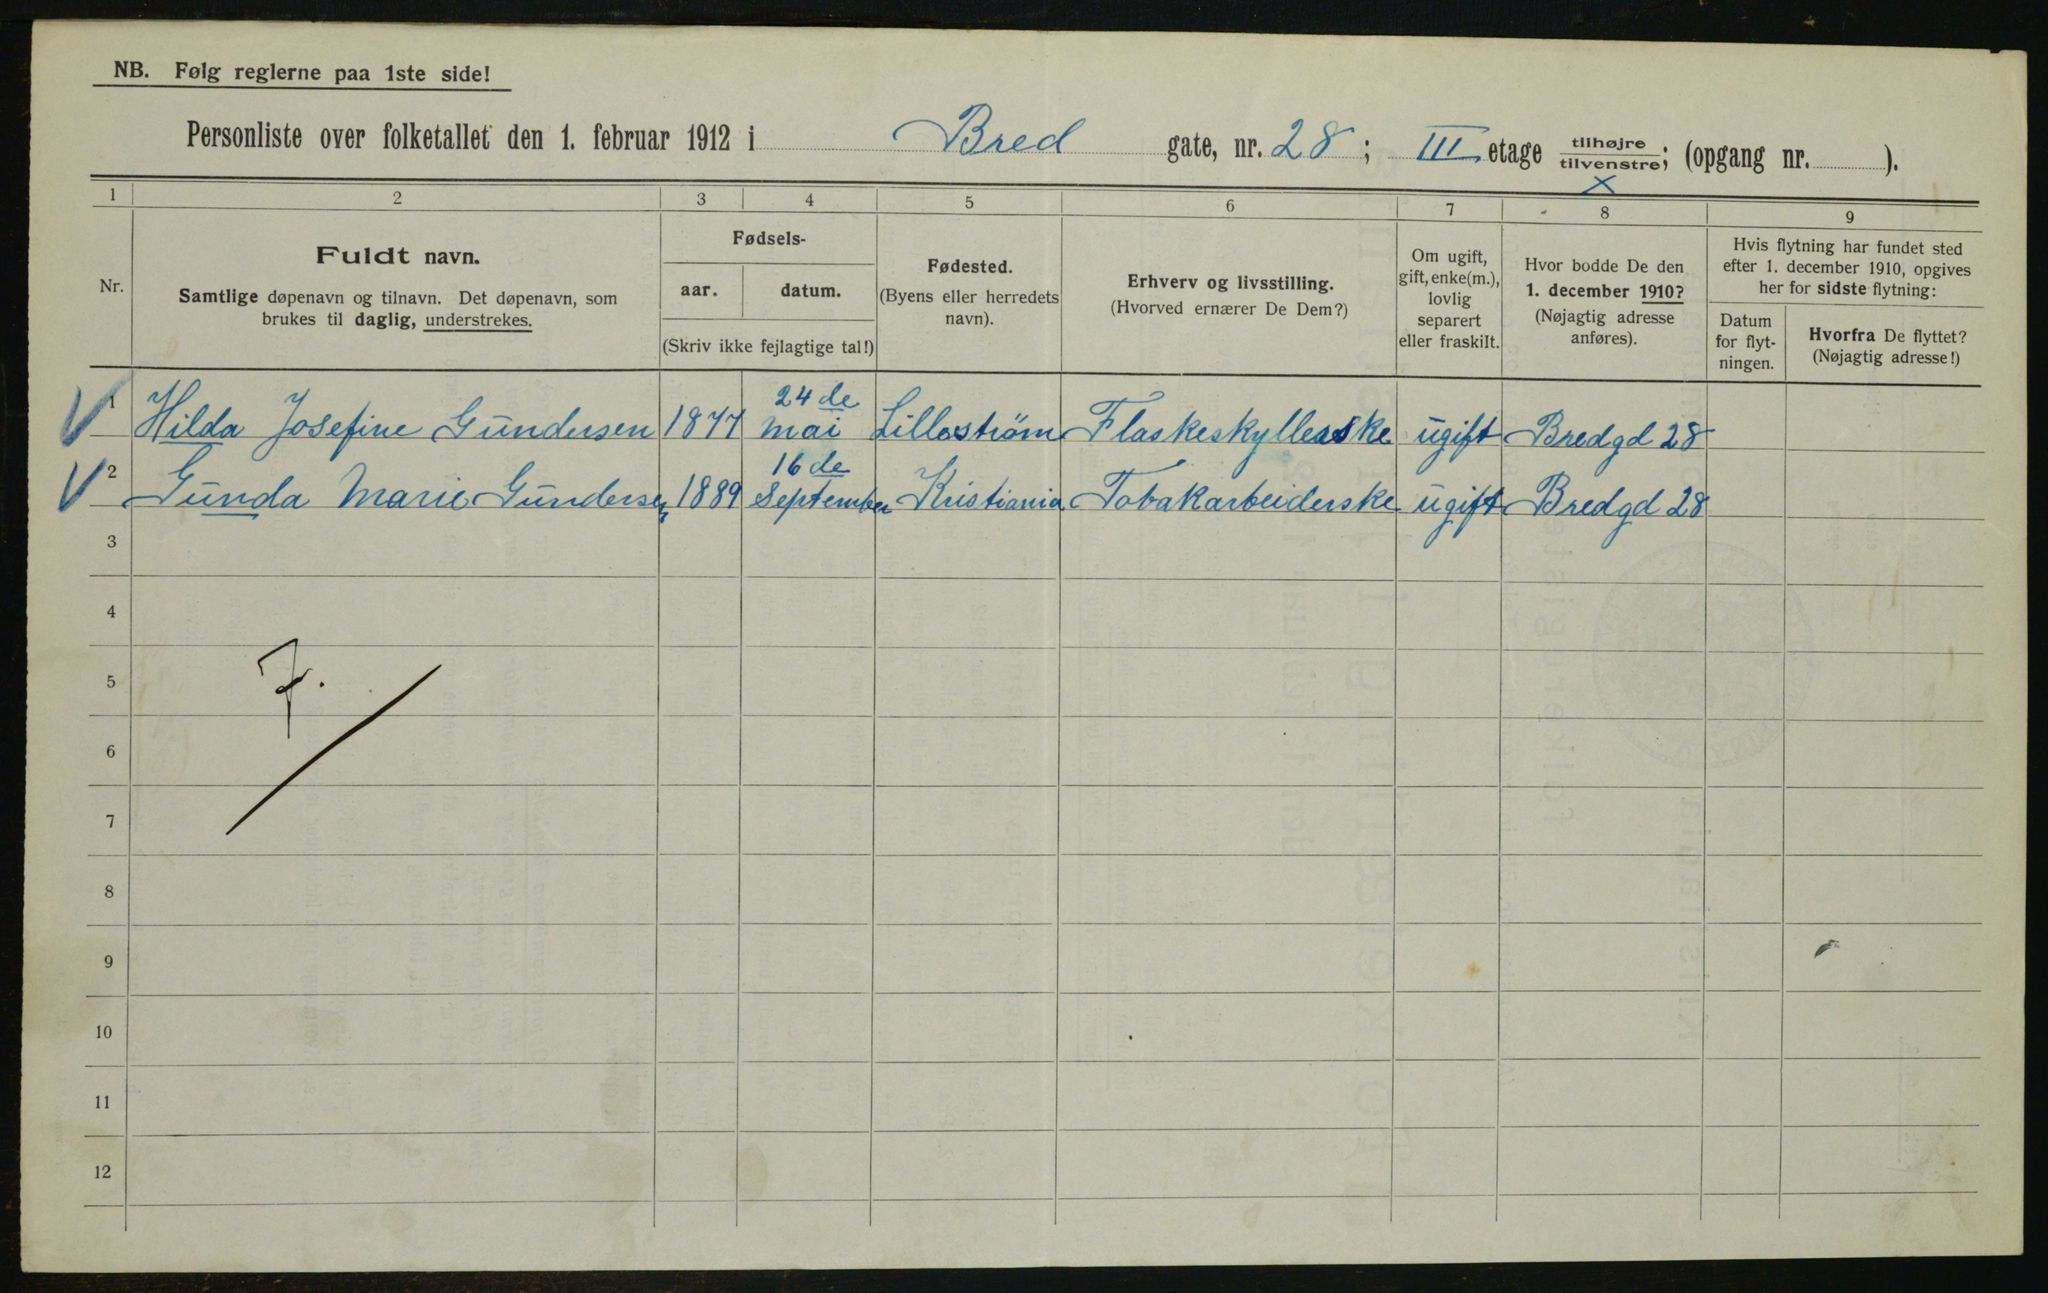 NB. Følg reglerne paa 1ste side!
Personliste over folketallet den 1. februar 1912 i Bred gate, nr. 28; III etage tilhøjre/tilvenstre; (opgang nr. ).
x
1 2 3 4 5 6 7 8 9
Nr.
Fuldt navn.
Samtlige døpenavn og tilnavn. Det døpenavn, som
brukes til daglig, understrekes.
Fødsels-
aar. datum.
(Skriv ikke fejlagtige tal!)
Fødested.
(Byens eller herredets
navn).
Erhverv og livsstilling.
(Hvorved ernærer De Dem?)
Om ugift,
gift, enke(m.),
lovlig
separert
eller fraskilt.
Hvor bodde De den
1. december 1910?
(Nøjagtig adresse
anføres).
Hvis flytning har fundet sted
efter 1. december 1910, opgives
her for sidste flytning:
Datum
for flyt-
ningen.
Hvorfra De flyttet?
(Nøjagtig adresse!)
1 Hilda Josefine Gundersen 1877 24de mai Lillestrøm Flaskeskyllerske ugift Bredgd 28
2 Gunda Marie Gundersen 1889 16de September Kristiania Tobakarbeiderske ugift Bredgd 28
3
4
5
7.
6
7
8
9
10
11
12